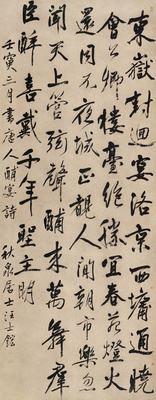 東嶽封迴宴洛京西墉通晚
會公卿樓臺絕勝宜春苑燈火
還同不夜城正覩人間朝市樂忽
聞天上管絃聲酺來萬舞羣
臣醉喜戴千年聖主明
壬寅三月書唐人酺宴詩
秋泉居士汪士鋐